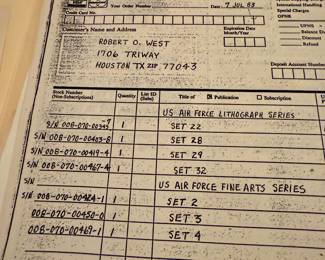 Your Order Number
7 JUL 83
International Handling
Special Charges
OPNR
Credit Card No.
Expiration Date
Month/Year
UPNS
Balance Due
Discount
Refund
Customer's Name and Address
ROBERT O. WEST
1706 TRIWAY
HOUSTON TX ZIP 77043
Deposit Account Number
Stock Number
(Non-Subscriptions)
Quantity
List ID
(Sales)
Title of
Publication
Subscription
US AIR FORCE LITHOGRAPH SERIES
S/N 008-070-00345-7 1 SET 22
S/N 008-070-00403-8 1 SET 28
S/N 008-070-00419-4 1 SET 29
S/N 008-070-00467-4 1 SET 32
S/N US AIR FORCE FINE ARTS SERIES
S/N 008-070-00424-1 1 SET 2
008-070-00450-0 1 SET 3
008-070-00469-1 1 SET 4